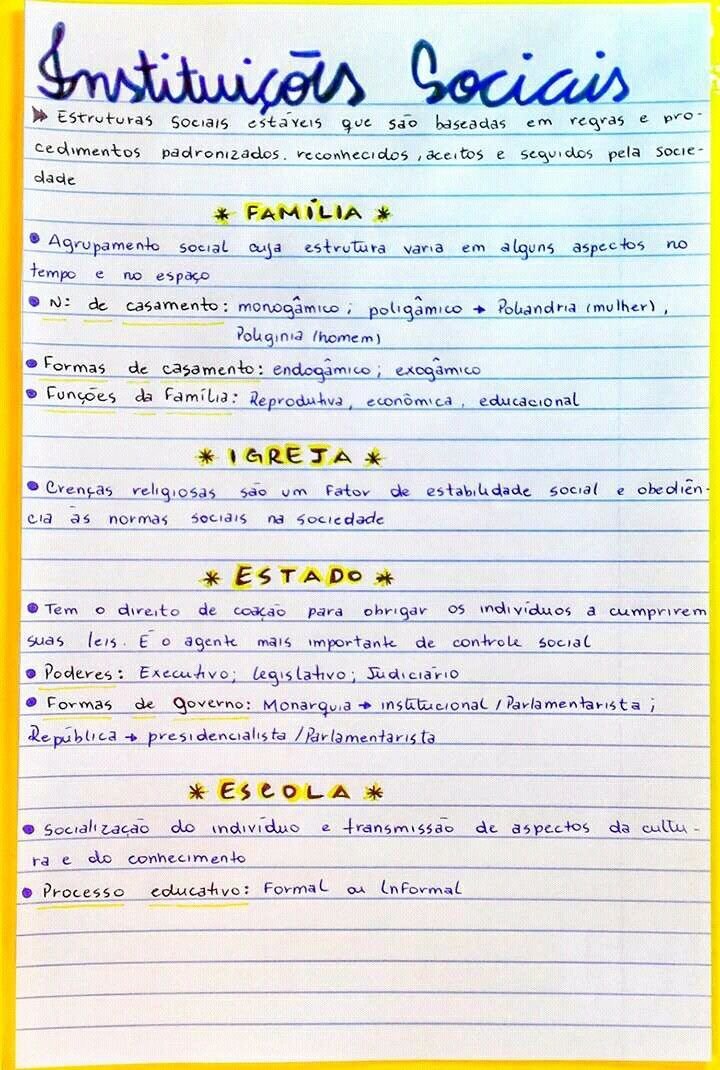 Instituições Sociais
Estruturas sociais estáveis que são baseadas em regras e pro-
cedimentos padronizados. reconhecidos, aceitos e seguidos pela socie-
dade
* FAMÍLIA *
• Agrupamento social cuja estrutura varia em alguns aspectos no
tempo e no espaço
• N: de casamento: monogâmico; poligâmico → Poliandria (mulher),
Poliginia (homem)
• Formas de casamento: endogâmico; exogâmico
• Funções da Família: Reprodutiva, econômica, educacional
* IGREJA *
• Crenças religiosas são um fator de estabilidade social e obediên-
cia às normas sociais na sociedade
* ESTADO *
• Tem o direito de coação para obrigar os indivíduos a cumprirem
suas leis. É o agente mais importante de controle social
• Poderes: Executivo; legislativo; Judiciário
• Formas de governo: Monarquia → institucional / Parlamentarista;
República → presidencialista / Parlamentarista
* ESCOLA *
• Socialização do indivíduo e transmissão de aspectos da cultu-
ra e do conhecimento
• Processo educativo: Formal ou Informal